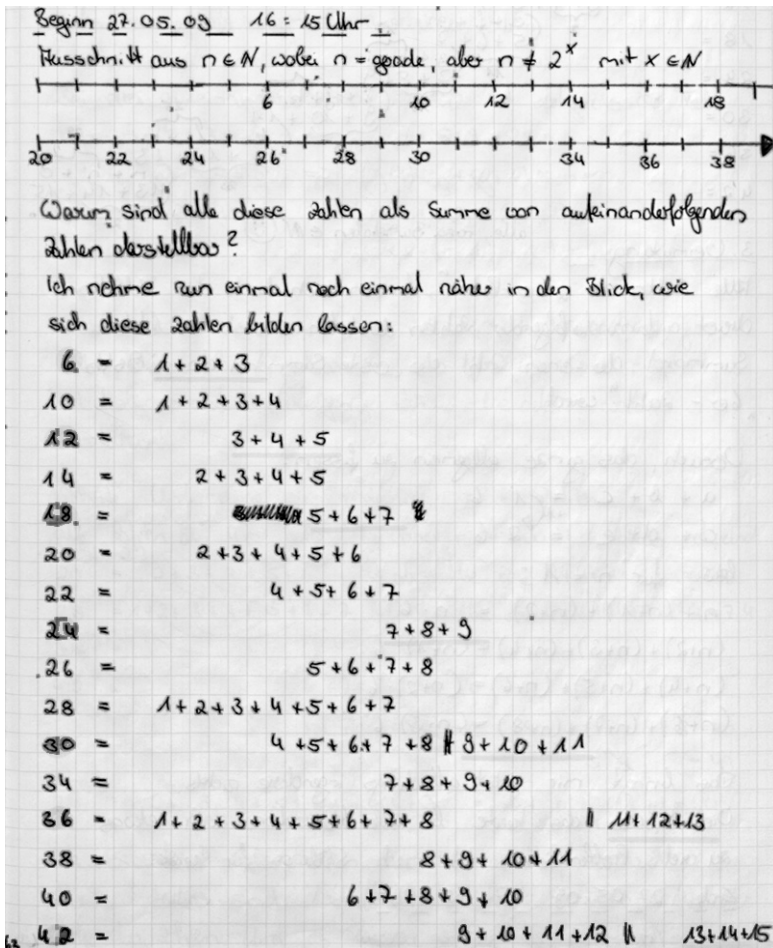 Beginn 27.05.09 16:15 Uhr
Ausschnitt aus n ∈ N, wobei n = gerade, aber n ≠ 2^x mit x ∈ N
6 10 12 14 18
20 22 24 26 28 30 34 36 38
Warum sind alle diese Zahlen als Summe von aufeinanderfolgenden
Zahlen darstellbar?
Ich nehme nun einmal noch einmal näher in den Blick, wie
sich diese Zahlen bilden lassen:
6 = 1+2+3
10 = 1+2+3+4
12 = 3+4+5
14 = 2+3+4+5
18 = 5+6+7
20 = 2+3+4+5+6
22 = 4+5+6+7
24 = 7+8+9
26 = 5+6+7+8
28 = 1+2+3+4+5+6+7
30 = 4+5+6+7+8 || 9+10+11
34 = 7+8+9+10
36 = 1+2+3+4+5+6+7+8 || 11+12+13
38 = 8+9+10+11
40 = 6+7+8+9+10
42 = 9+10+11+12 || 13+14+15